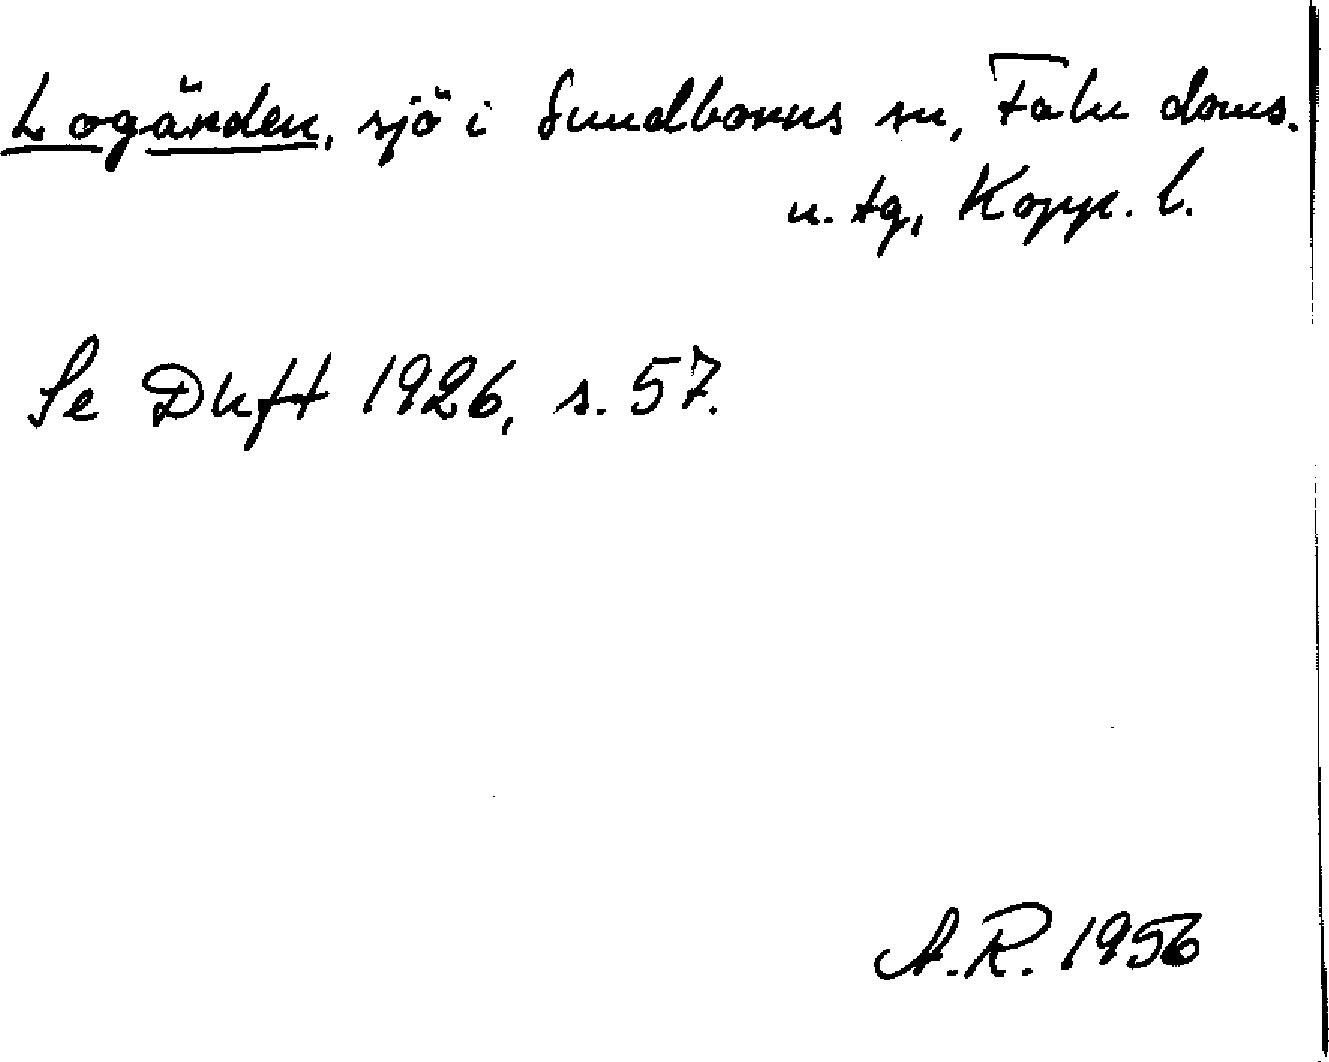 Logärden, sjö i Sundborns sn, Falu doms.
n. tg, Kopp. l.
Se Dhft 1926, s. 57.
A.R. 1956